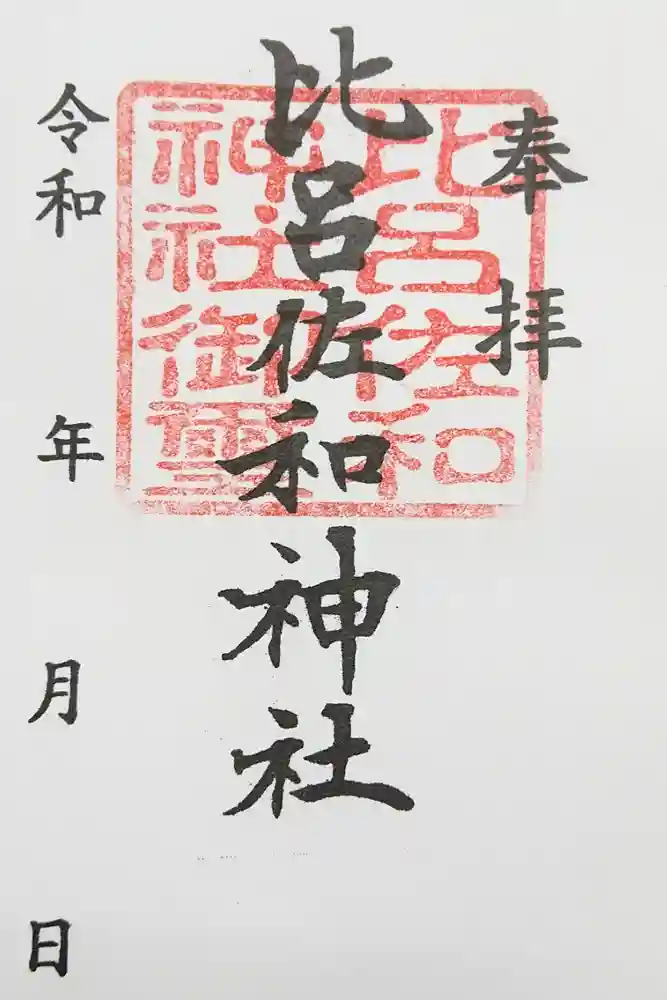 奉拝
比呂佐和神社
比呂左和
神社御璽
令和 年 月 日